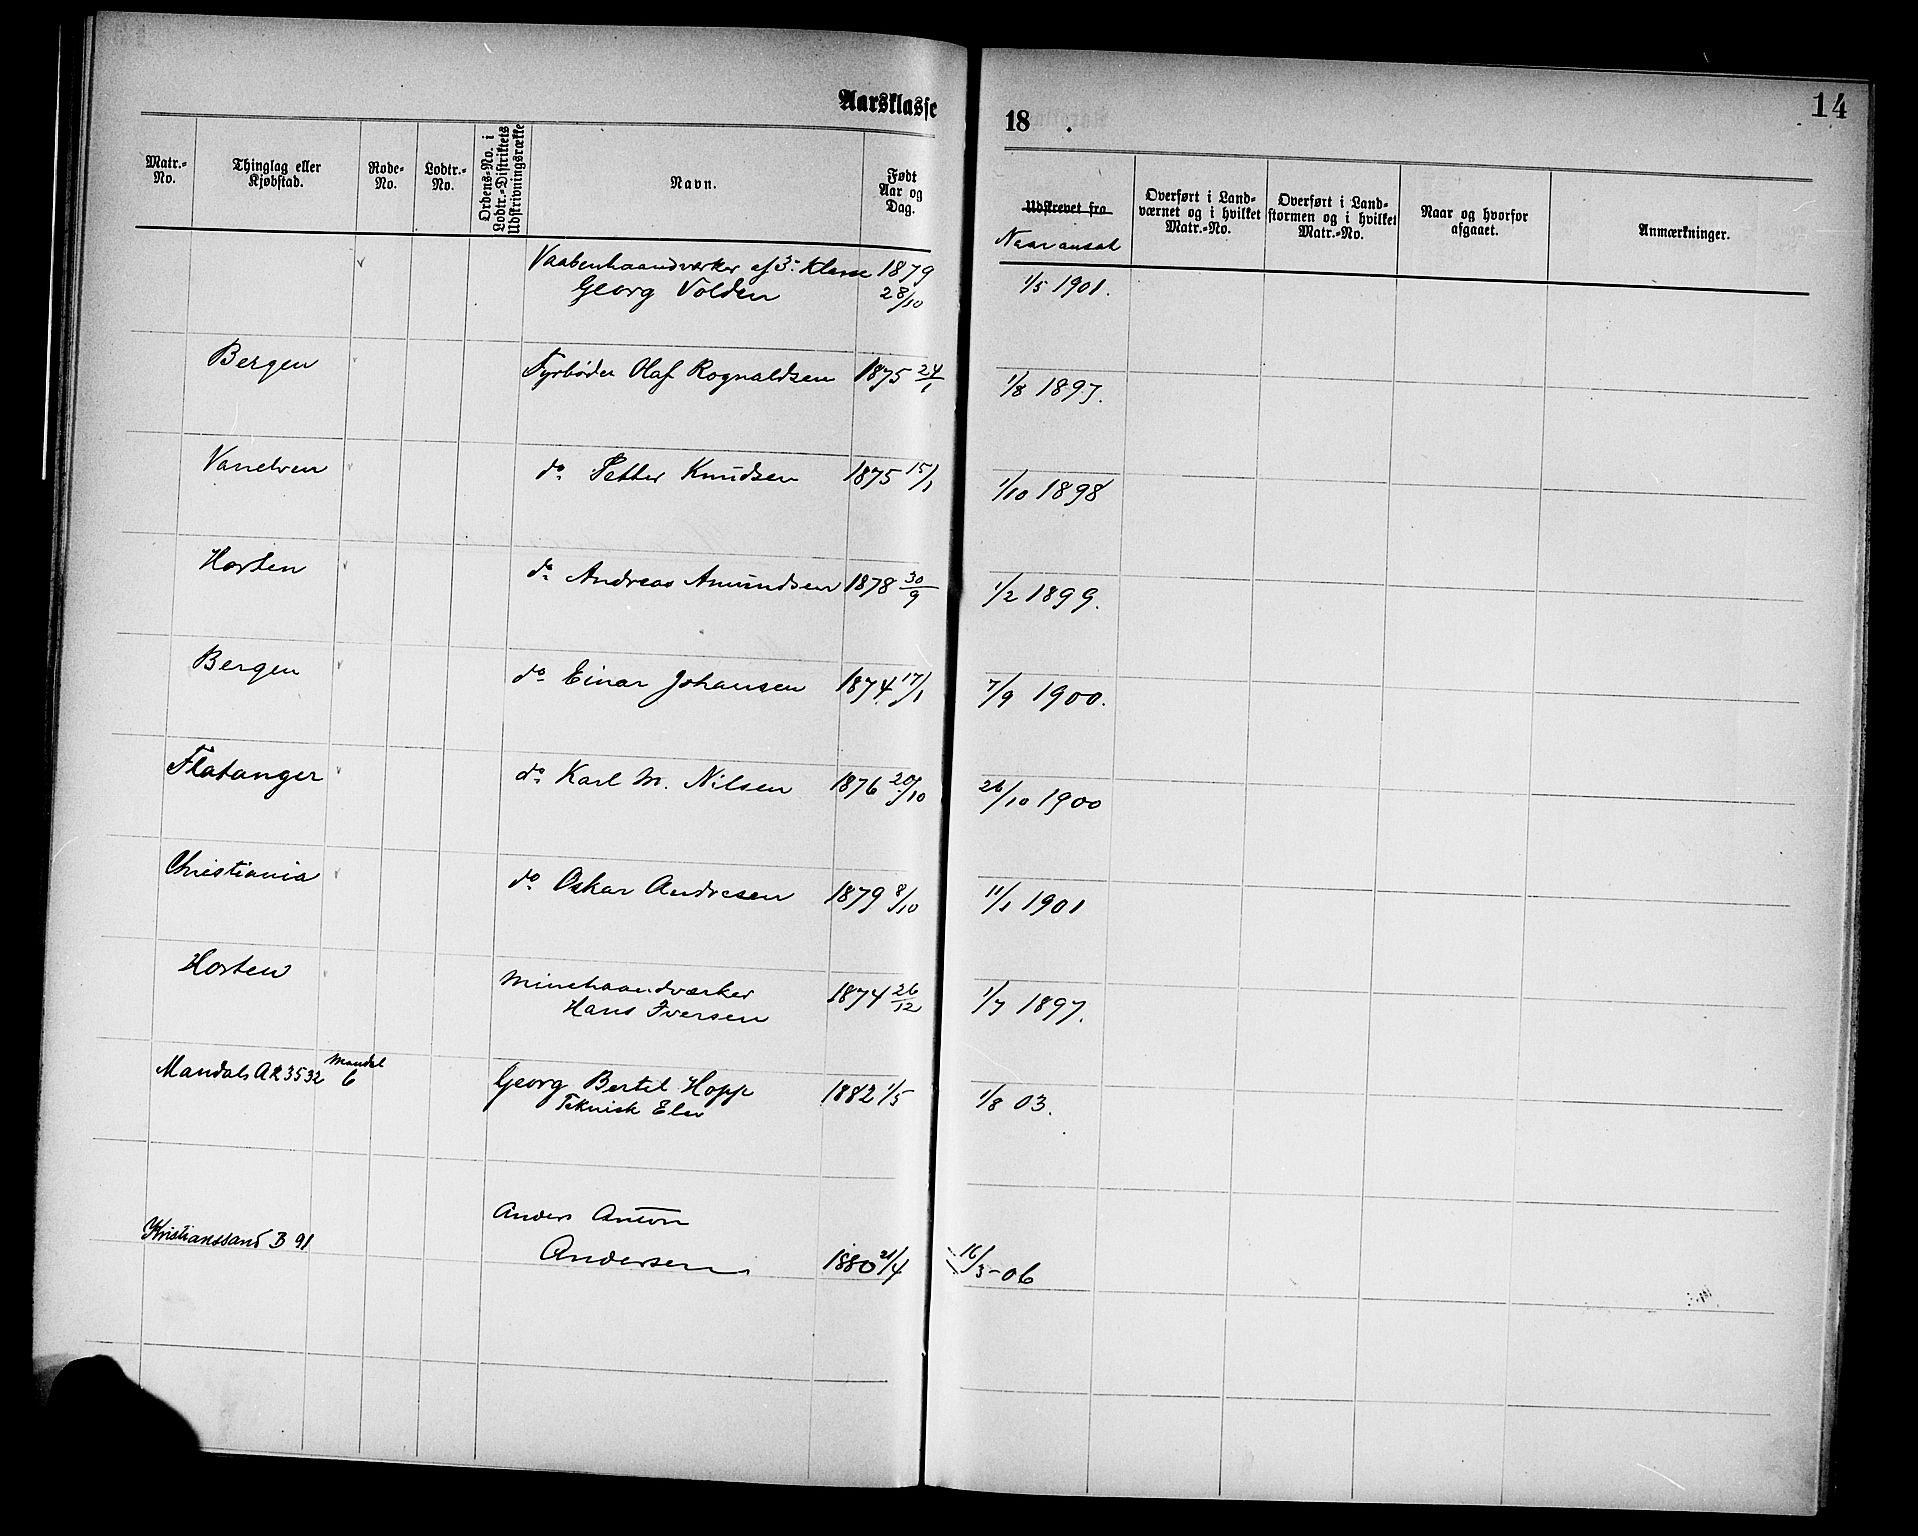 14
Aarsklasse 18 .
Matr.-No. Thinglag eller Kjøbstad. Rode-No. Lodtr.-No. Ordens-No. i Lodtr.-Distriktets Udskrivningsrække Navn. Født Aar og Dag. Udskrevet fra Naar ansat Overført i Landværnet og i hvilket Matr.-No. Overført i Landstormen og i hvilket Matr.-No. Naar og hvorfor afgaaet. Anmærkninger.
Vaabenhaandværker af 3. Klasse 1879
Georg Volden 28/10 1/5 1901.
Bergen Fyrbøder Olaf Rognaldsen 1875 24/1 1/8 1897.
Vanelven do Petter Knudsen 1875 15/1 1/10 1898
Horten do Andreas Amundsen 1878 30/9 1/2 1899.
Bergen do Einar Johansen 1874 17/1 7/9 1900.
Flatanger do Karl M. Nilsen 1876 20/10 26/10 1900
Christiania do Oskar Andresen 1879 8/10 11/1 1901
Horten Minehaandværker 1874 26/12 1/7 1897.
Hans Iversen
Mandals A R 3532 Mandal 6 Georg Bertil Hopp 1882 1/5 1/8 03.
Teknisk Elev
Anders Anton
Kristianssand B 91 Andersen 1880 21/4 16/3-06